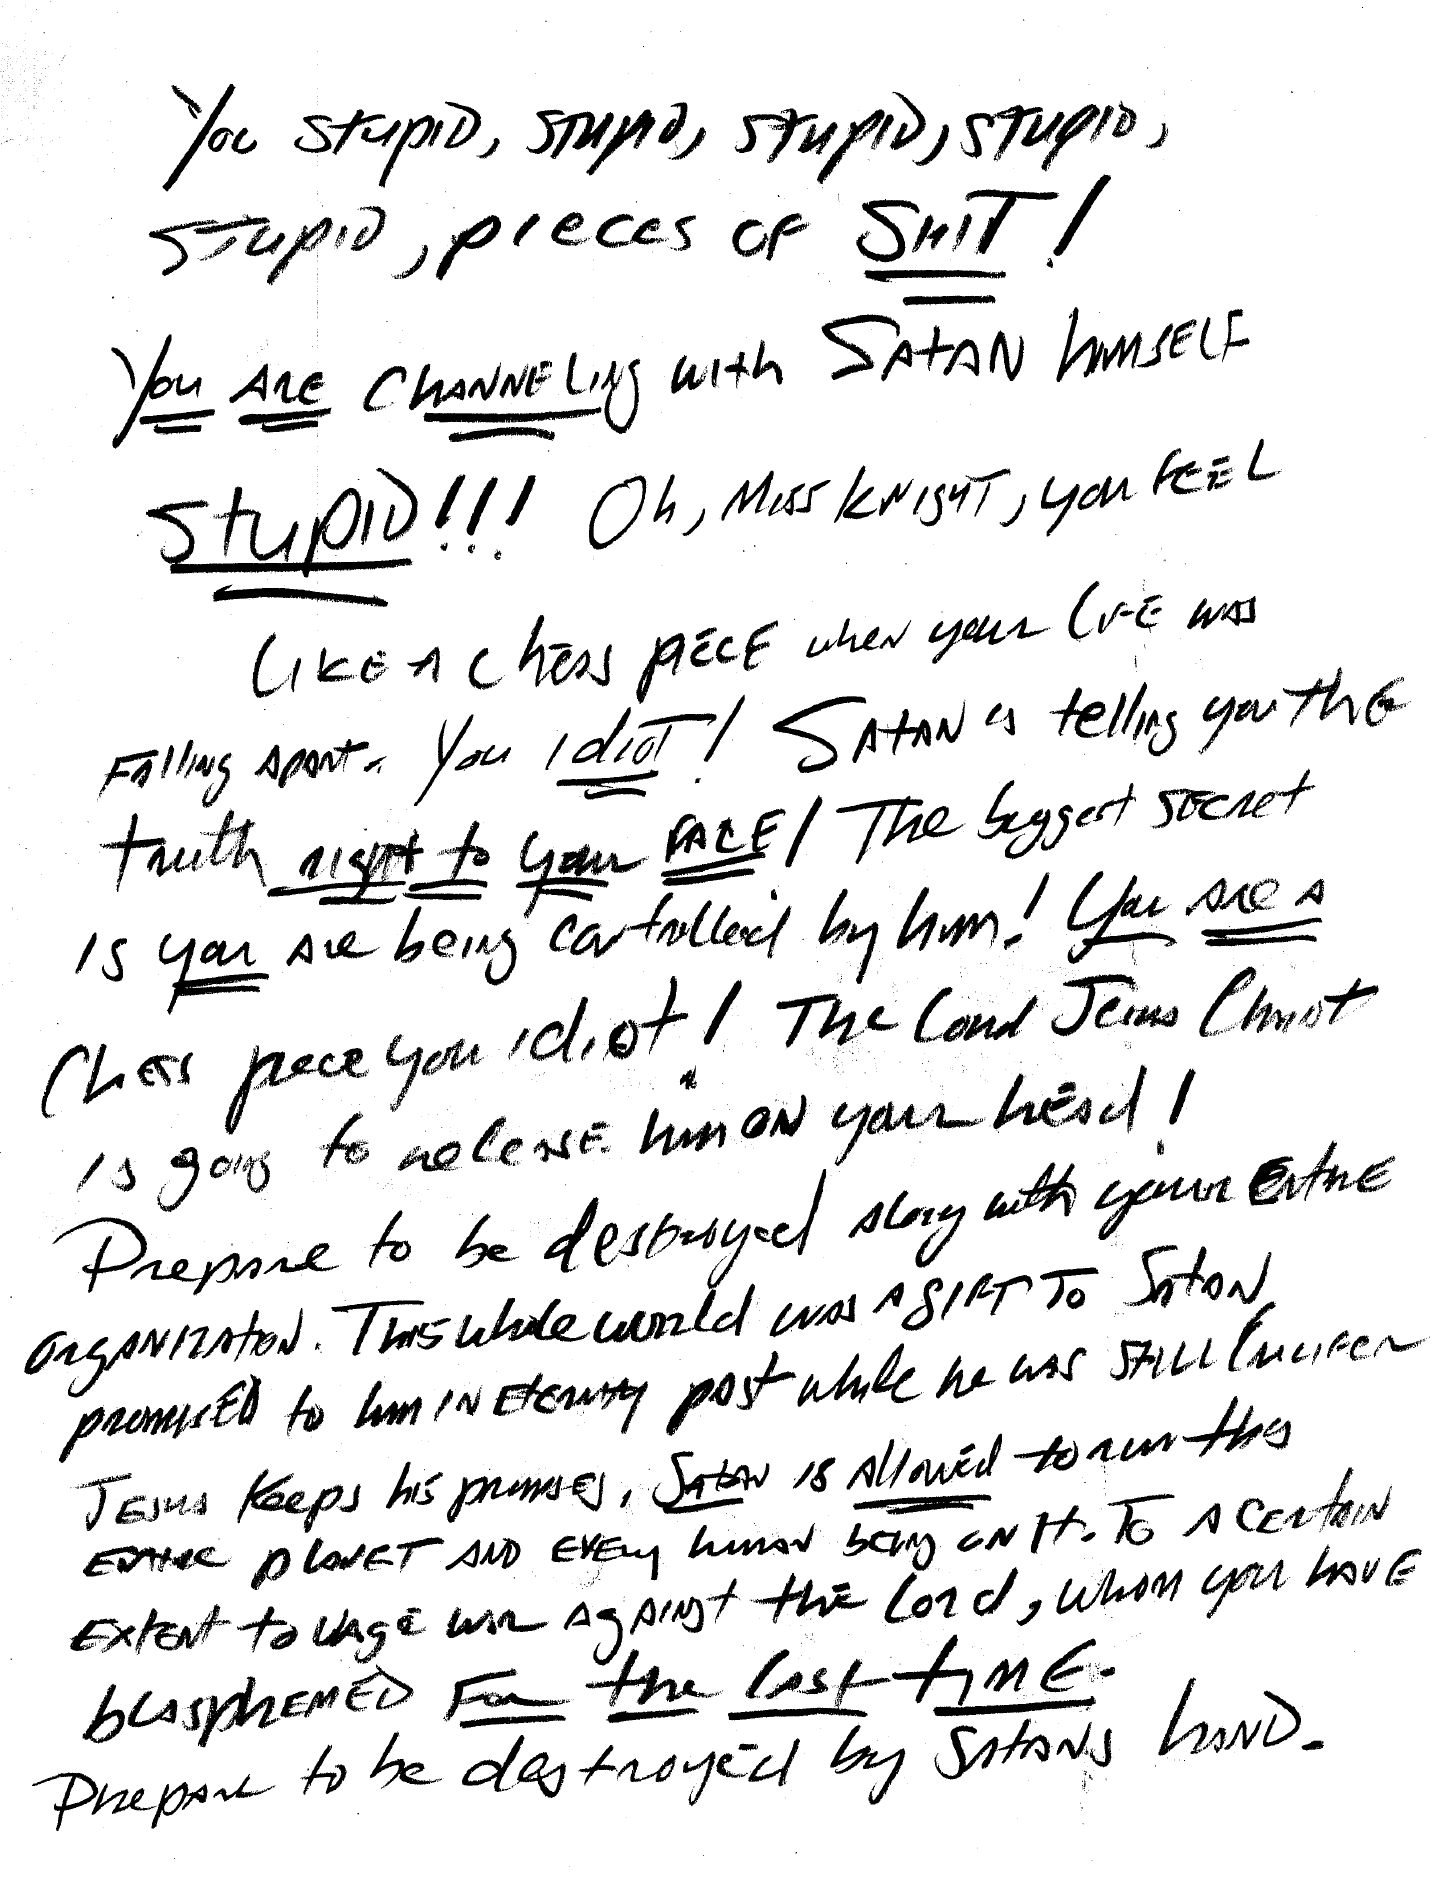 You stupid, stupid, stupid, stupid,
stupid, pieces of SHIT!
You ARE CHANNELING with SATAN HIMSELF
STUPID!!! Oh, Miss Knight, you FEEL
LIKE A Chess piECE when your LIFE was
FAlling apart. You idiot! SATAN is telling you the
truth right to your FACE! The biggest secret
is you are being controlled by him! You are a
Chess piece you idiot! The Lord Jesus Christ
is going to release him ON your head!
Prepare to be destroyed along with your Entire
organization. This whole world was A GIFT TO SATAN
promised to him in Eternity past while he was still Lucifer
Jesus Keeps his promises. Satan is allowed to run this
entire planet AND every human being on it. To a certain
extent to wage war against the Lord, whom you have
blasphemed For the Last time.
Prepare to be destroyed by Satans hand.